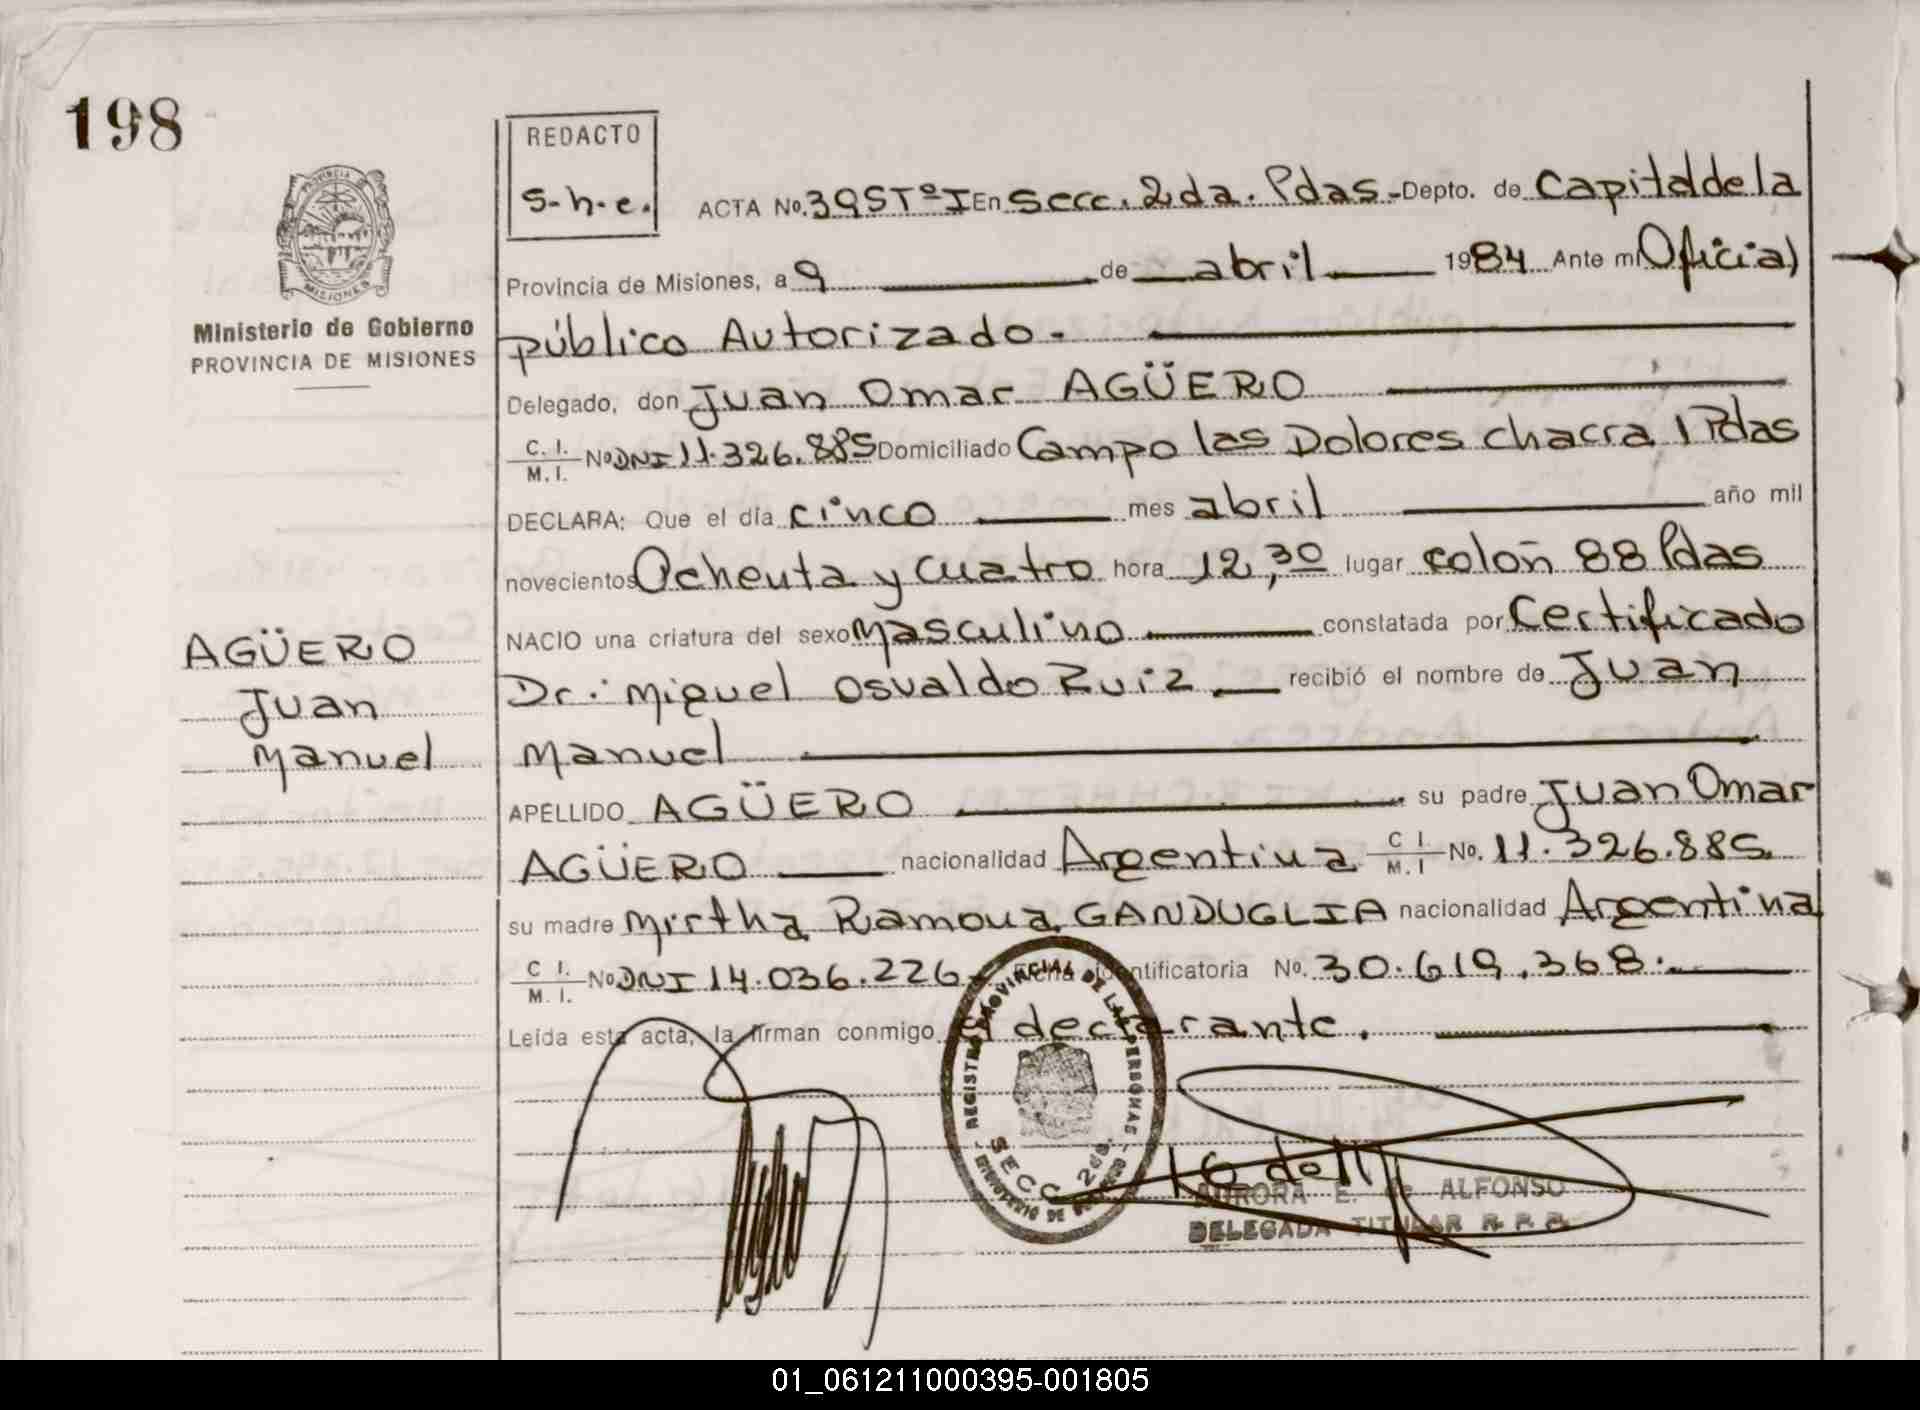 198
REDACTO
S-h-e.
PROVINCIA DE
MISIONES
Ministerio de Gobierno
PROVINCIA DE MISIONES
ACTA No. 395 Tº I En Secc. 2da. Pdas.- Depto. de Capital de la
Provincia de Misiones, a 9 de abril 1984 Ante mi Oficial
público Autorizado.
Delegado, don Juan Omar AGÜERO
C. I. / M. I. No DNI 11.326.885 Domiciliado Campo las Dolores chacra 1 Pdas
DECLARA: Que el día cinco mes abril año mil
novecientos Ochenta y cuatro hora 12,30 lugar colón 88 Pdas
NACIO una criatura del sexo Masculino constatada por Certificado
Dr.: Miguel Osvaldo Ruiz recibió el nombre de Juan
Manuel
APELLIDO AGÜERO su padre Juan Omar
AGÜERO nacionalidad Argentina C I. / M. I No. 11.326.885.
su madre Mirtha Ramona GANDUGLIA nacionalidad Argentina
C I. / M. I. No DNI 14.036.226. Ficha identificatoria No. 30.619.368.
Leída esta acta, la firman conmigo el declarante.
AGÜERO
Juan
Manuel
REGISTRO PROVINCIAL DE LAS PERSONAS
SECC 2da.
MINISTERIO DE GOBIERNO
AURORA E. de ALFONSO
DELEGADA TITULAR R. P. P.
01_061211000395-001805